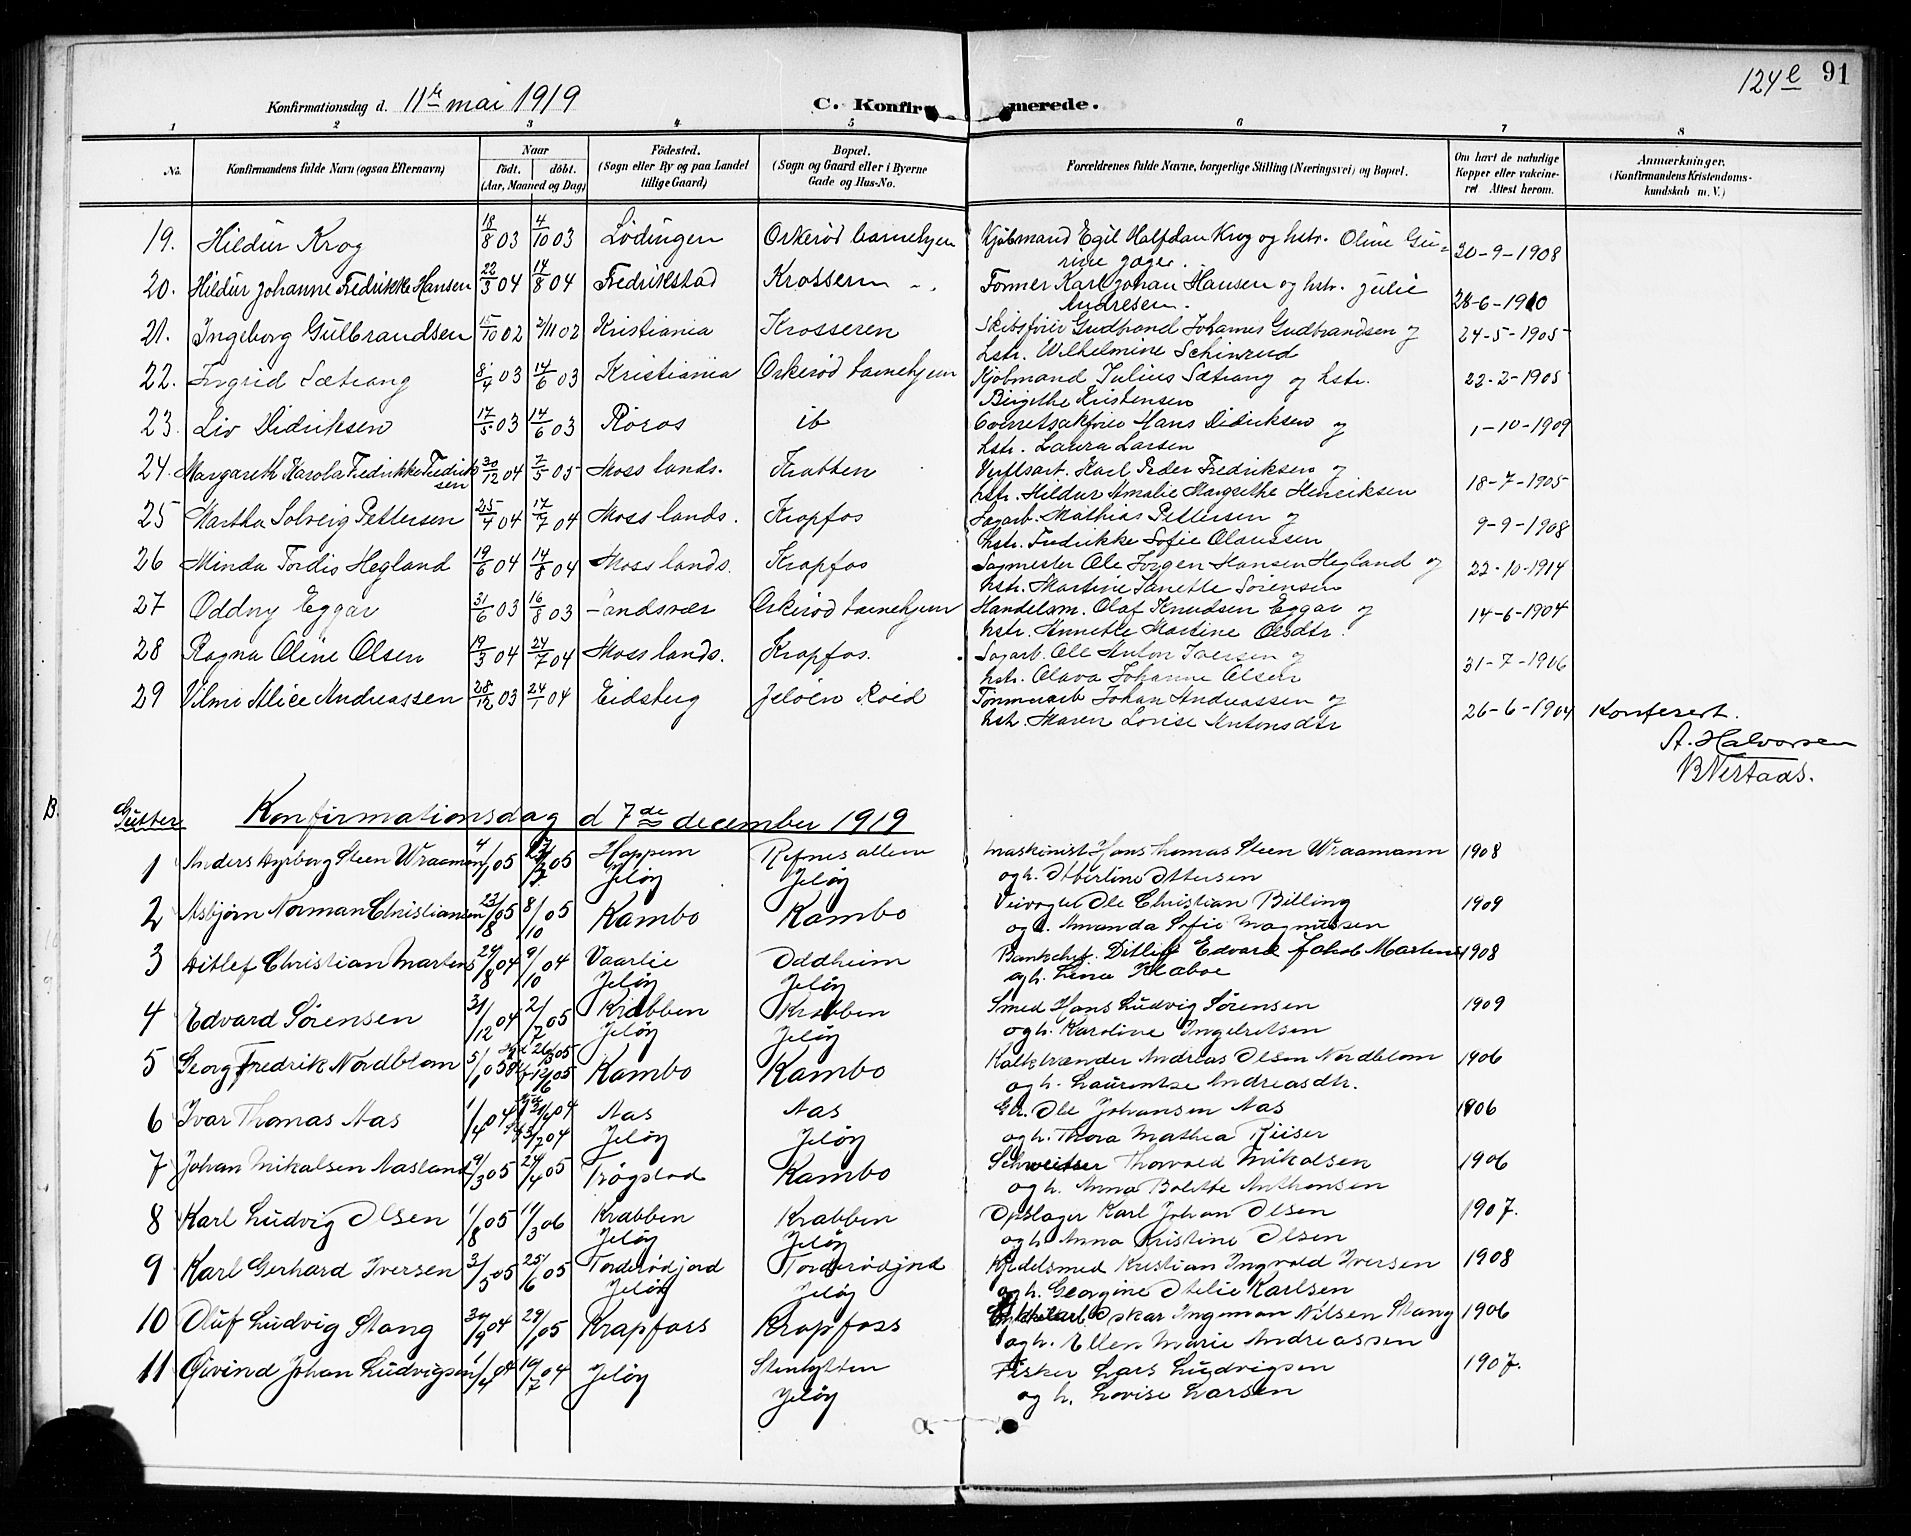 124 e 91
Konfirmationsdag d. 11te mai 1919 C. Konfirmerede.
1 2 3 4 5 6 7 8
No. Konfirmandens fulde Navn (ogsaa Efternavn) Naar født. døbt. (Aar, Maaned og Dag) Fødested. (Sogn eller By og paa Landet tillige Gaard) Bopæl. (Sogn og Gaard eller i Byerne Gade og Hus-No. Forældrenes fulde Navne, borgerlige Stilling (Næringsvei) og Bopæl. Om havt de naturlige Kopper eller vakcineret Attest herom. Anmærkninger. (Konfirmandens Kristendomskundskab m. V.)
19. Hildur Krog 18/8 03 4/10 03 Lødingen Orkerød barnehjem Kjøbmand Egil Halfdan Krog og hstr. Oline Gu-
rine Jæger. 30-9-1908
20. Hildur Johanne Fredrikke Hansen 22/3 04 14/8 04 Fredrikstad Krosseren Former Karl Johan Hansen og hstr. Julie
Andresen. 28-6-1910
21. Ingeborg Gulbrandsen 15/10 02 2/11 02 Kristiania Krosseren Skibsfører Gudbrand Johannes Gudbrandsen og
hstr. Wilhelmine Schinrud 24-5-1905
22. Ingrid Sætrang 8/4 03 14/6 03 Kristiania Orkerød barnehjem Kjøbmand Julius Sætrang og hstr.
Birgithe Kristensen 22-2-1905
23. Liv Didriksen 17/5 03 14/6 03 Røros ib Overretsakfører Hans Didriksen og
hstr. Laura Larsen 1-10-1909
24. Margareth Karola Fredrikke Fredrik
sen 30/12 04 7/5 05 Moss lands. Krabben Verftsarb. Karl Peder Fredriksen og
hstr. Hildur Amalie Margrethe Henriksen 18-7-1905
25 Martha Solveig Pettersen 25/4 04 17/7 04 Moss lands. Krapfos Sagarb. Mathias Pettersen og
hstr. Fredrikke Sofie Olaussen 9-9-1908
26 Minda Tordis Hegland 19/6 04 14/8 04 Moss lands. Krapfos Sagmester Ole Jørgen Hansen Hegland og
hstr. Martine Janette Sørensen 22-10-1914
27 Oddny Eggar 31/6 03 16/8 03 Sandsvær Orkerød barnehjem Handelsm. Olaf Knudsen Eggar og
hstr. Annette Martine Olsdtr. 14-6-1904
28 Ragna Oline Olsen 19/3 04 24/7 04 Moss lands. Krapfos. Sagarb. Ole Anton Iversen og
hstr. Olava Johanne Olsen 31-7-1906
29 Vilmi Alice Andreassen 28/12 03 24/1 04 Eidsberg Jeløen Roid Tømmerarb Johan Andreassen og
hstr. Maren Lovise Antonsdtr 26-6-1904 Konferert.
A. Halvorsen
B Nestaas.
B. Gutter Konfirmationsdag d 7de december 1919
1 Anders Dyrborg Steen Wraamann 4/1 05 05 Hoppern Refnes alleen Maskinist Hans Thomas Steen Wraamann 1908
Jeløy Jeløy og h. Albertine Ottersen
2 Asbjørn Norman Christiansen 23/8 05 8/10 05 Kambo Kambo Veivogter Ole Christian Billing 1909
og h. Amanda Sofie Magnussen
3 Ditlef Christian Martens 24/8 04 9/10 04 Vaarlie Oddheim Bankchef. Ditlef Edvard Jakob Martens 1908
Jeløy Jeløy og h. Lina Klaboe
4 Edvard Sørensen 31/12 04 2/7 05 Krabben Krabben Smed Hans Ludvig Sørensen 1909
Jeløy Jeløy og h. Karoline Ingelretsen
5 Georg Fredrik Nordblom 5/1 05 26/3 05 12/6 05 Kambo Kambo Kalkbrænder Andreas Olsen Nordblom 1906
og h. Laurentse Andreasdtr.
6 Ivar Thomas Aas 1/4 04 3/7 04 Aas Aas Gbr. Ole Johansen Aas 1906
Jeløy Jeløy og h. Thora Mathea Riiser
7 Johan Mikalsen Aasland 9/3 05 24/4 05 Trøgstad Kambo Schweitser Thorvald Mikalsen 1906
og h. Anna Bolette Anthonsen
8 Karl Ludvig Olsen 1/8 05 11/3 06 Krabben Krabben Opslager Karl Johan Olsen 1907.
Jeløy Jeløy og h. Anna Kristine Olsen
9 Karl Gerhard Iversen 3/5 05 25/6 05 Torderødjord Torderødjord Kjedelsmed Kristian Ingvald Iversen 1908
Jeløy Jeløy og h. Georgine Otelie Karlsen
10 Oluf Ludvig Stang 30/9 04 29/1 05 Krapfoss Krapfoss Oskar Ingeman Nilsen Stang 1906
og h. Ellen Marie Andreassen
11 Øivind Johan Ludvigsen 1/4 04 10/7 04 Jeløy Stenhytten Fisker Lars Ludvigsen 1907.
Jeløy og h. Lovise Larsen